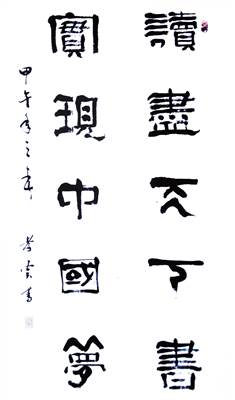 讀盡天下書
實現中國夢
甲午年之春